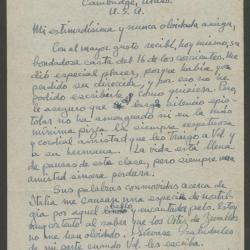 Cambridge, Mass.
U. S. A.
Mi estimadísima y nunca olvidada amiga,
Con el mayor gusto recibí, hoy mismo, su
bondadosa carta del 16 de los corrientes. Me
dió especial placer, porque había
perdido su dirección, y por eso no he
podido escribirle como quisiera. Pero
le aseguro que este largo silencio epis-
tolar no ha amenguado ni en la más
mínima pizca la siempre respetuosa
y cordial amistad que les traigo a Vd. y
a su hermana. La vida está llena
de pausas de esta clase, pero siempre
amistad sincera perdura.
Sus palabras conmovidas acerca de
Italia me causan una especie de nostal-
gia por aquel suelo y encantador país. Estoy
muy contento de saber que los Ortiz de
no me han olvidado. Déles saludes
de mi parte cuando Vd. les escriba.